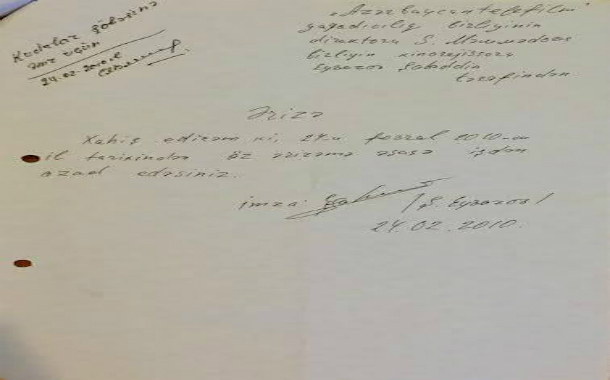 Kadrlar şöbəsinə
əmr üçün
24.02.2010-cu il
"Azərbaycantelefilm"
yaradıcılıq birliyinin
direktoru S. Məmmədova
birliyin kinorejissoru
Eyvazov Şəhəddin
tərəfindən.
Ərizə
Xahiş edirəm ki, 24-ü fevral 2010-cu
il tarixindən öz ərizəmə əsasə işdən
azad edəsiniz.
imza: /Ş. Eyvazov/
24.02.2010.